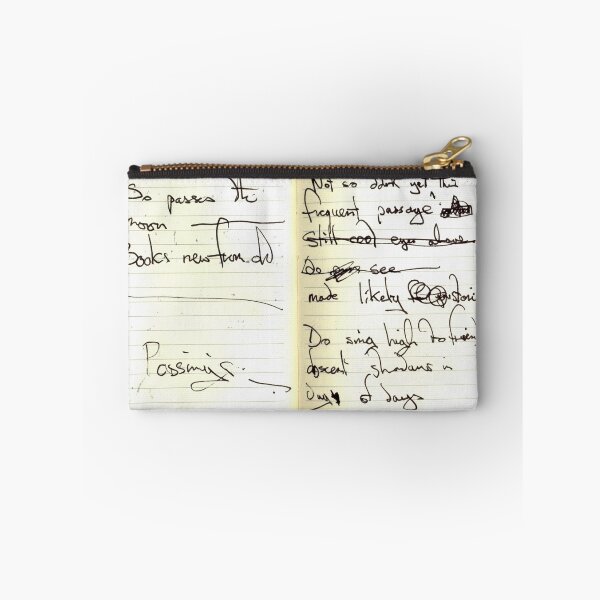 So passes the
moon
Books new from old
Passing.
Not so dark yet this
frequent passage
still cool eyes above
see
made likely
Do sing high to
ascent showers in
of days